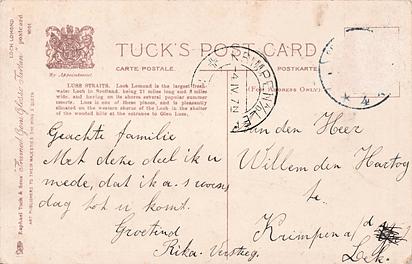 TUCK'S POST CARD
CARTE POSTALE.
POSTKARTE
(FOR ADDRESS ONLY)
By Appointment
LUSS STRAITS. Loch Lomond is the largest fresh-
water Loch in Scotland, being 21 miles long and 5 miles
wide, and having on its shores several popular summer
resorts. Luss is one of these places, and is pleasantly
situated on the western shores of the Loch in the shelter
of the wooded hills at the entrance to Glen Luss.
LOCH LOMOND
Raphael Tuck & Sons' "Framed Gem Glosso" Series postcard
ART PUBLISHERS TO THEIR MAJESTIES THE KING & QUEEN
KRIMPEN
4 IV 7
Geachte familie
Met deze deel ik u
mede, dat ik a.s
dag tot u komt.
Groetend
Rika. Versteeg.
Aan den Heer
Willem den Hartog
te
Krimpen a/d
Lek.